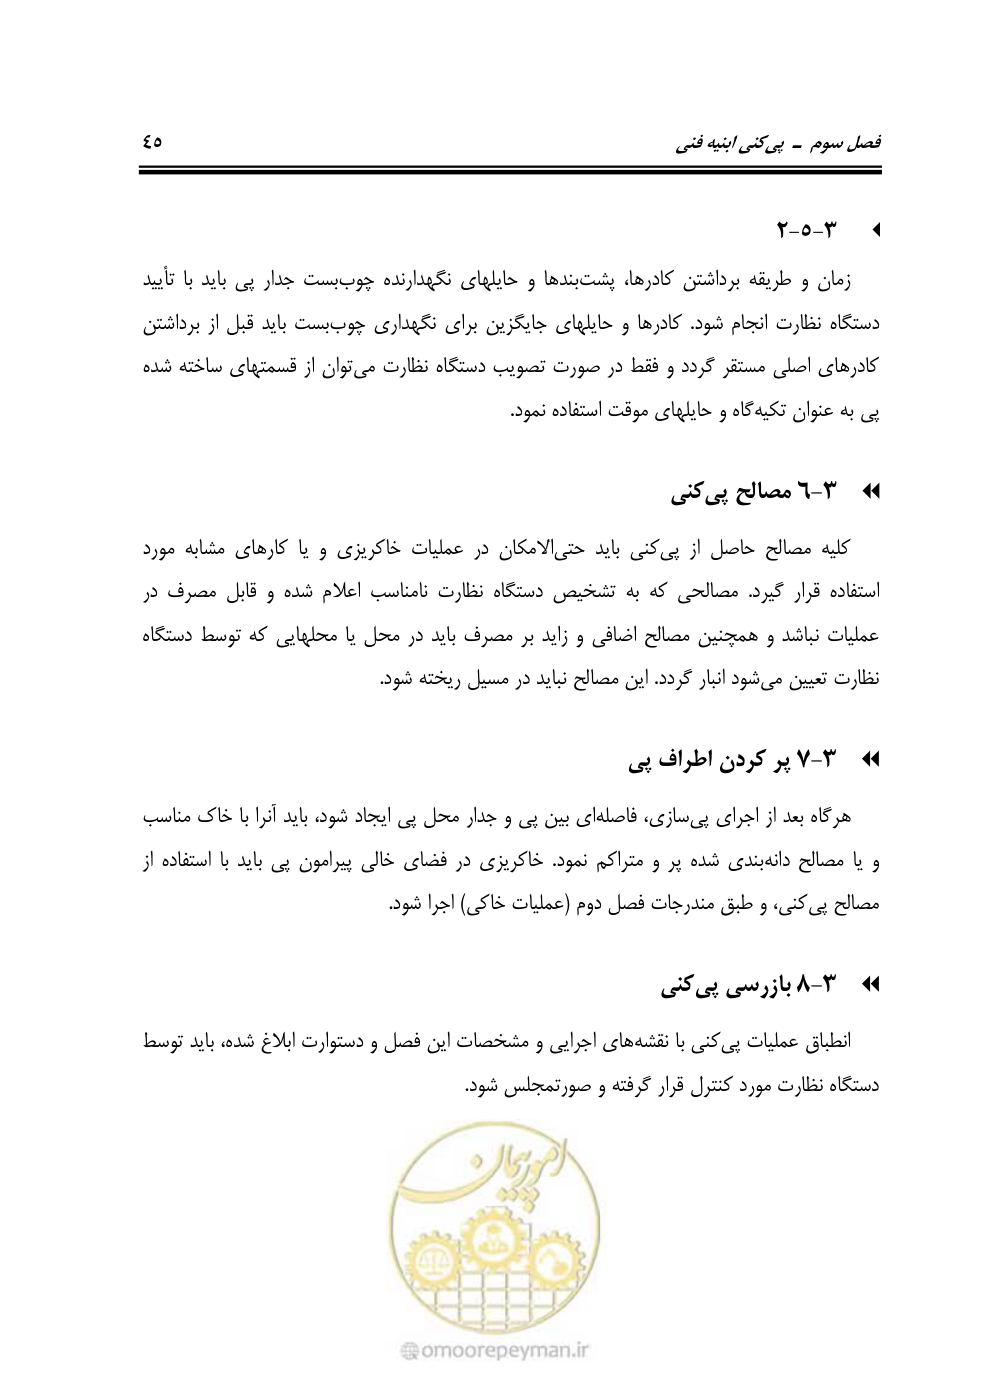 فصل سوم – پی‌کنی ابنیه فنی ٤٥
٣-٥-٢
زمان و طریقه برداشتن کادرها، پشت‌بندها و حایلهای نگهدارنده چوب‌بست جدار پی باید با تأیید
دستگاه نظارت انجام شود. کادرها و حایلهای جایگزین برای نگهداری چوب‌بست باید قبل از برداشتن
کادرهای اصلی مستقر گردد و فقط در صورت تصویب دستگاه نظارت می‌توان از قسمتهای ساخته شده
پی به عنوان تکیه‌گاه و حایلهای موقت استفاده نمود.
٣-٦ مصالح پی‌کنی
کلیه مصالح حاصل از پی‌کنی باید حتی‌الامکان در عملیات خاکریزی و یا کارهای مشابه مورد
استفاده قرار گیرد. مصالحی که به تشخیص دستگاه نظارت نامناسب اعلام شده و قابل مصرف در
عملیات نباشد و همچنین مصالح اضافی و زاید بر مصرف باید در محل یا محلهایی که توسط دستگاه
نظارت تعیین می‌شود انبار گردد. این مصالح نباید در مسیل ریخته شود.
٣-٧ پر کردن اطراف پی
هرگاه بعد از اجرای پی‌سازی، فاصله‌ای بین پی و جدار محل پی ایجاد شود، باید آنرا با خاک مناسب
و یا مصالح دانه‌بندی شده پر و متراکم نمود. خاکریزی در فضای خالی پیرامون پی باید با استفاده از
مصالح پی‌کنی، و طبق مندرجات فصل دوم (عملیات خاکی) اجرا شود.
٣-٨ بازرسی پی‌کنی
انطباق عملیات پی‌کنی با نقشه‌های اجرایی و مشخصات این فصل و دستوارت ابلاغ شده، باید توسط
دستگاه نظارت مورد کنترل قرار گرفته و صورتمجلس شود.
امور پیمان
@omoorepeyman.ir